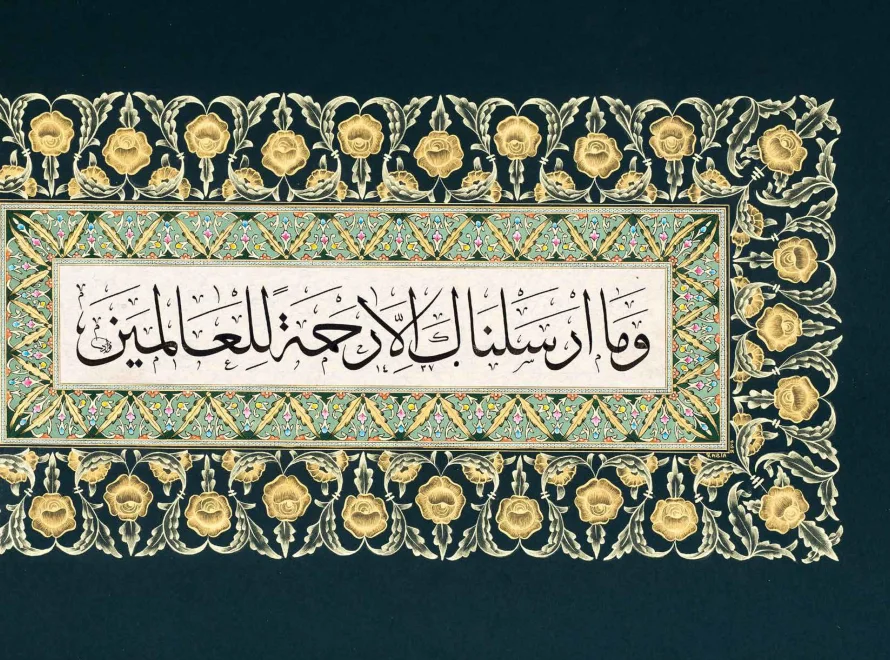 وَمَا اَرْسَلْنَاكَ اِلَّا رَحْمَةً لِلْعَالَمِينَ
١٤٣٧